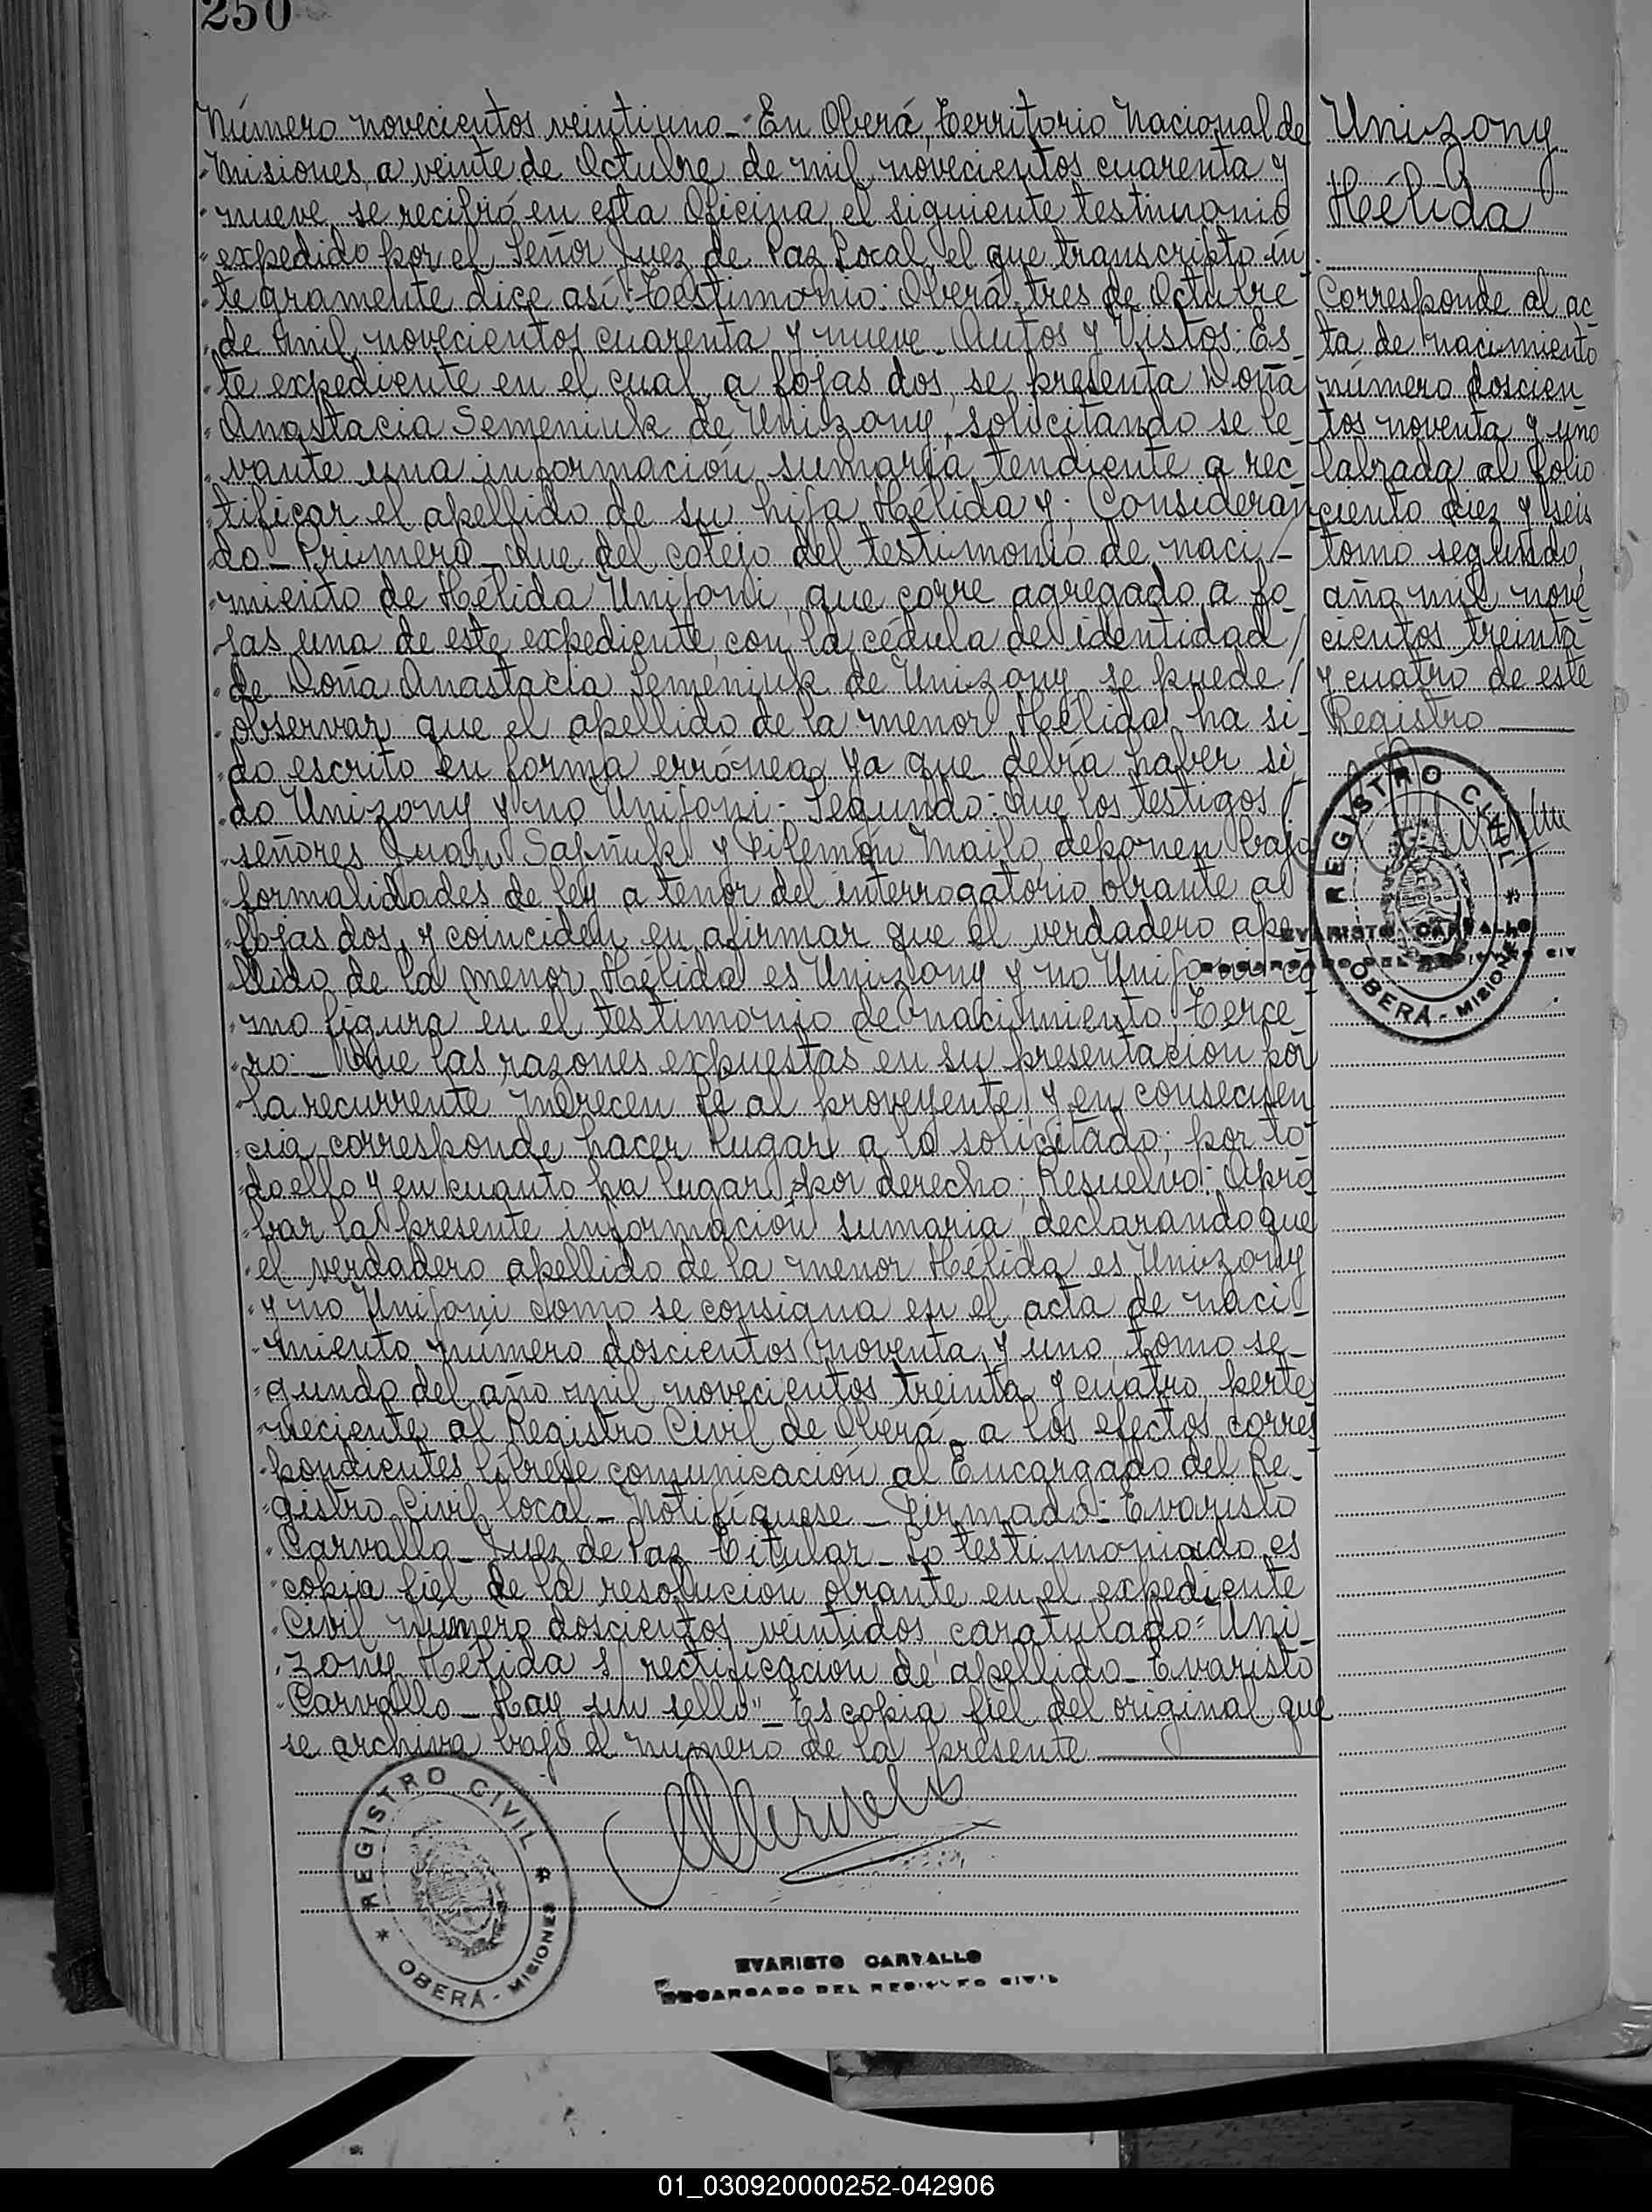 250
Número novecientos veintiuno_ En Oberá, Territorio Nacional de
Misiones, a veinte de Octubre de mil novecientos cuarenta y
nueve, se recibió en esta Oficina el siguiente testimonio
expedido por el Señor Juez de Paz Local, el que transcripto ín
tegramente dice así: Testimonio: Oberá, tres de Octubre
de mil novecientos cuarenta y nueve. Autos y Vistos: Es_
te expediente en el cual a fojas dos, se presenta Doña
Anastacia Semeniuk de Unizony, solicitando se le_
vante una información sumaria tendiente a rec_
tificar el apellido de su hija Hélida y; Consideran
do_ Primero_ Que del cotejo del testimonio de naci_
miento de Hélida Unifoni, que corre agregado a fo_
jas una de este expediente, con la cédula de identidad/
de Doña Anastacia Semeniuk de Unizony, se puede/
observar que el apellido de la menor Hélida ha si_
do escrito en forma errónea, ya que debía haber si_
do Unizony y no Unifoni- Segundo: Que los testigos
señores Juan Sapñuk y Filemón Mailo, deponen bajo
formalidades de ley a tenor del interrogatorio obrante a
fojas dos, y coinciden en afirmar que el verdadero ape
llido de la menor Hélida es Unizony y no Unifoni co
mo figura en el testimonio de nacimiento; Terce_
ro:_ Que las razones expuestas en su presentación por
la recurrente merecen fe al proveyente y en consecuen
cia corresponde hacer lugar a lo solicitado; por to
do ello y en cuanto ha lugar por derecho: Resuelvo: Apro
bar la presente información sumaria, declarando que
el verdadero apellido de la menor Hélida es Unizony
y no Unifoni como se consigna en el acta de naci_
miento número doscientos noventa y uno, tomo se_
gundo del año mil novecientos treinta y cuatro, perte
neciente al Registro Civil de Oberá_ a los efectos corres
pondientes líbrese comunicación al Encargado del Re_
gistro Civil local_ Notifíquese_ Firmado: Evaristo
Carvallo_ Juez de Paz Titular_ Lo testimoniado es
copia fiel de la resolución obrante en el expediente
Civil número doscientos veintidos caratulado= Uni_
zony Hélida s/ rectificación de apellido_ Evaristo
Carvallo_ Hay un sello"_ Es copia fiel del original que
se archiva bajo el número de la presente
Unizony
Hélida
Corresponde al ac_
ta de nacimiento
número doscien
tos noventa y uno
labrada al folio
ciento diez y seis
tomo segundo,
año mil nove
cientos treinta
y cuatro de este
Registro
REGISTRO CIVIL
OBERÁ - MISIONES
EVARISTO CARVALLO
ENCARGADO DEL REGISTRO CIV
REGISTRO CIVIL
OBERÁ - MISIONES
EVARISTO CARVALLO
ENCARGADO DEL REGISTRO CIVIL
01_030920000252-042906